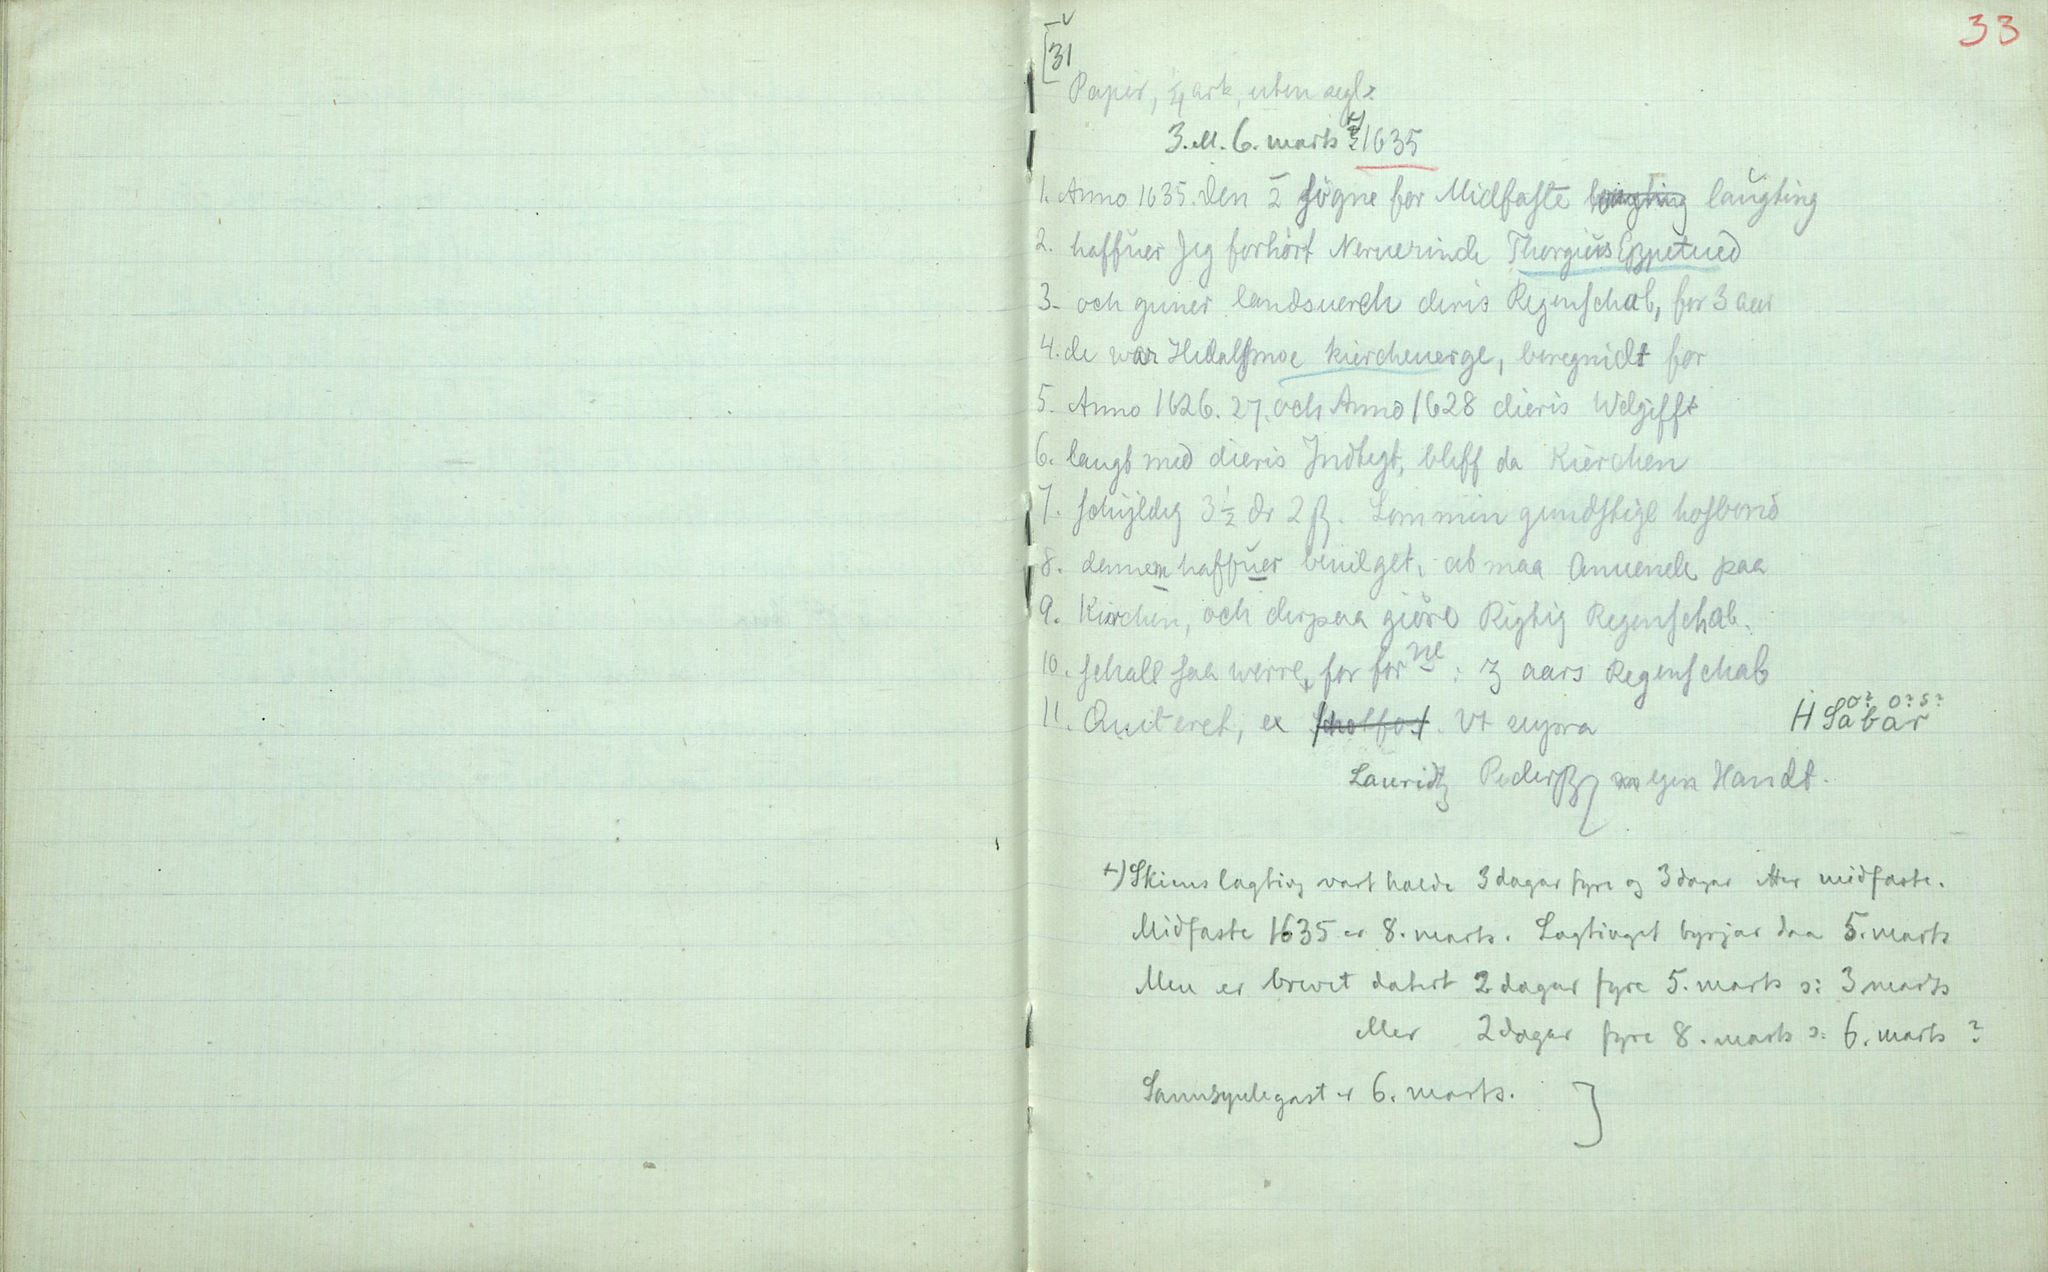 33
[31
Papir, ¼ ark, uten segl.
3. el. 6. marts +) 1635
1. Anno 1635. den 2 søgne for Midfaste laugting
2. haffuer Jeg forhørt Neruerinde Thorgius Eppetued
3. och guner landsuerch deris Regenschab, for 3 aar
4. de war Hedalsmoe kircheuerge, beregnidt for
5. Anno 1626. 27. och Anno 1628 dieris Wdgifft
6. laugt med dieris Indtegt, bleff da Kierchen
7. schyldig 3 ½ dr 2 ß. Som min gundstige hosbond
8. dennem haffuer beuilget, at maa Anuende paa
9. Kirchen, och derpaa giöre Rigtig Regenschab.
10. schall saa werre, for for ne : 3 aars Regenschab
11. Quiteret, ex Vt supra
H Sabar
o? o? s?
Lauridtz Pederß egen Handt.
+) Skiens lagting vart halde 3 dagar fyre og 3 dagar etter midfaste.
Midfaste 1635 er 8. marts. Lagtinget byrjar daa 5. marts
Men er brevet datert 2 dagar fyre 5. marts ɔ: 3 marts
eller 2 dagar fyre 8. marts ɔ: 6. marts ?
Sannsynlegast er 6. marts. ]